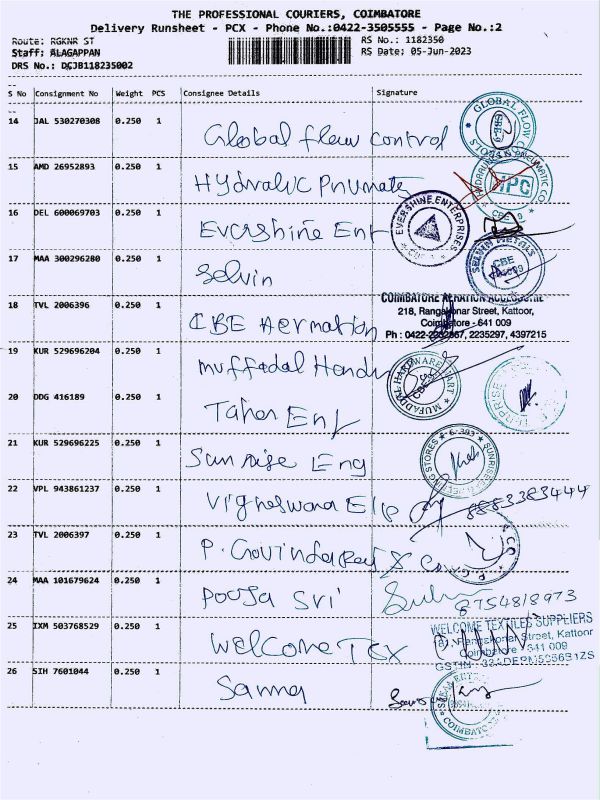 THE PROFESSIONAL COURIERS, COIMBATORE
Delivery Runsheet - PCX - Phone No.:0422-3505555 - Page No.:2
Route: RGKNR ST
Staff: ALAGAPPAN
DRS No.: DCJB118235002
RS No.: 1182350
RS Date: 05-Jun-2023
S No Consignment No Weight PCS Consignee Details Signature
14 JAL 530270308 0.250 1 Global flow control
GLOBAL FLOW
15 AMD 26952893 0.250 1 Hydralic Pnumate
HPC
CBE - 9
16 DEL 600069703 0.250 1 Evershine Ent
EVERSHINE ENTERPRISES
17 MAA 300296280 0.250 1 Selvin
SELVIN METALS
CBE
18 TVL 2006396 0.250 1 CBE Aermation
COIMBATORE AERATION
218, Rangakonar Street, Kattoor,
Coimbatore - 641 009
2235297, 4397215
19 KUR 529696204 0.250 1 Muffadal Hardw
MUFADDAL HARDWARE MART
20 DDG 416189 0.250 1 Taher Ent
21 KUR 529696225 0.250 1 Sunrise Eng
22 VPL 943861237 0.250 1 Vigneswara Ele
8883383444
23 TVL 2006397 0.250 1 P. Govindaraj & Co
24 MAA 101679624 0.250 1 Pooja Sri
8754818973
25 IXM 503768529 0.250 1 Welcome Tex
WELCOME TEXTILES SUPPLIERS
Rangakonar Street, Kattoor
Coimbatore - 641 009
26 SIH 7601044 0.250 1 Sanna
COIMBATORE